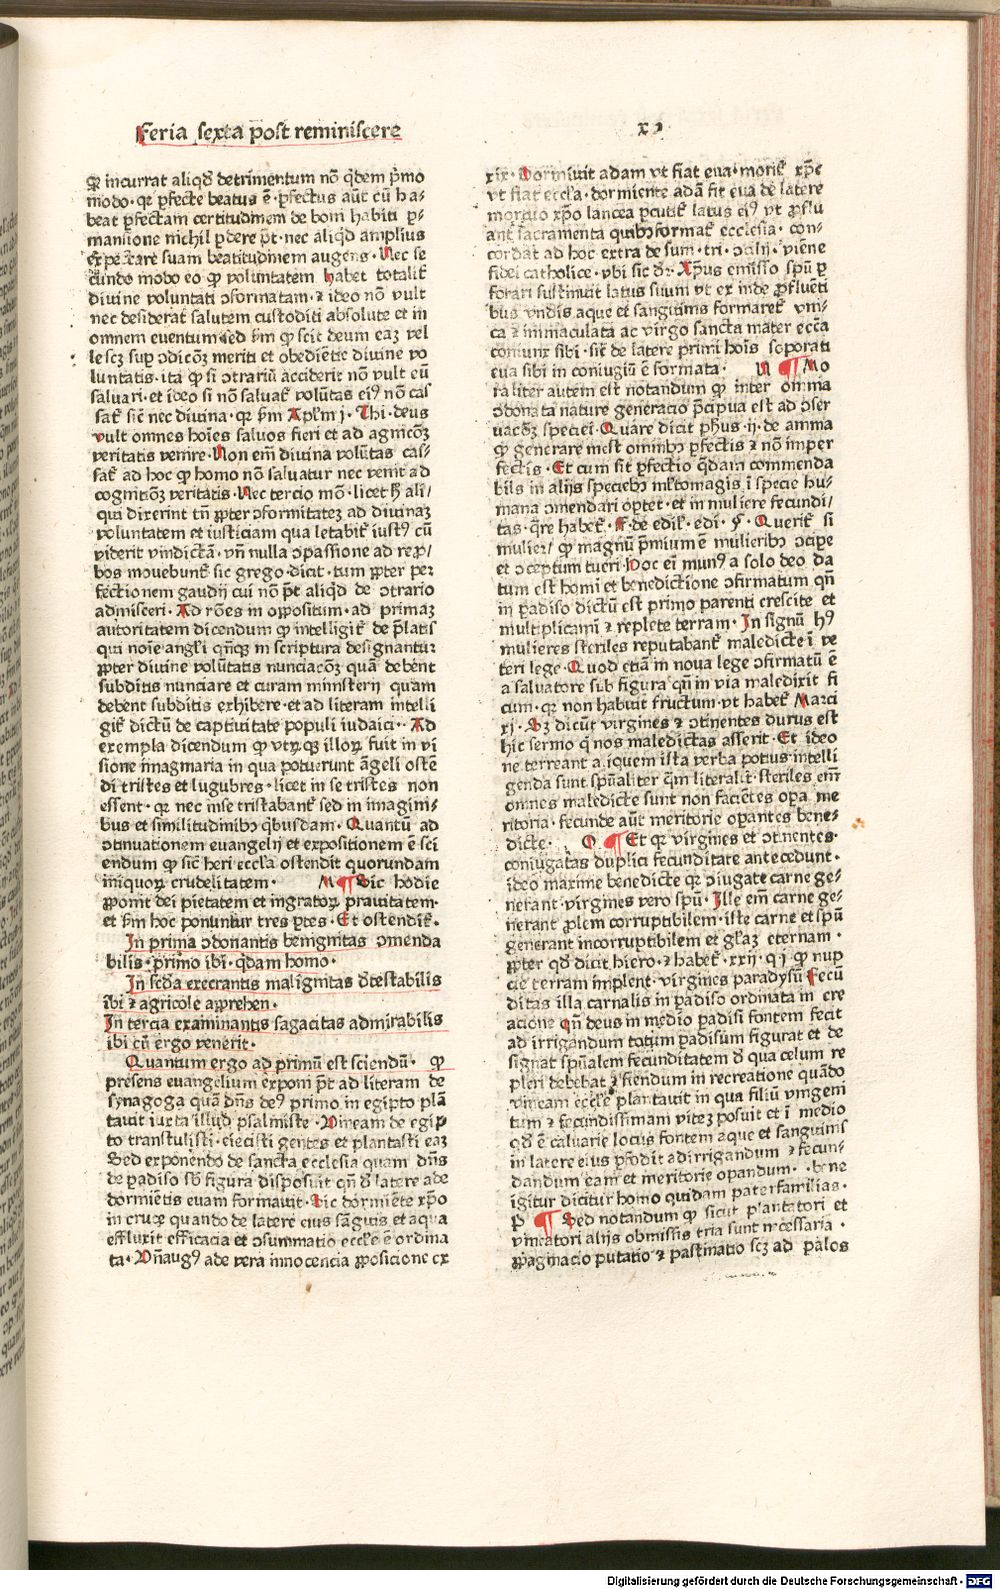 Feria sexta post reminiscere
xj
qꝛ incurrat aliqd̄ detrimentum nō q̄dem p̄mo
modo · qꝛ ꝑfecte beatus ē · ꝑfectus aūt cū ha⸗
beat ꝑfectam certitudinem de boni habiti ꝑ⸗
mansione nichil ꝑdere pt̄ · nec aliqd̄ amplius
expectare suam beatitudinem augens · Nec se
cundo modo eo ꝙ voluntatem habet totalit̄
diuine voluntati ɔformatam · ⁊ ideo nō vult
nec desiderat salutem custoditi absolute et in
omnem euentum sed s̄m ꝙ scit deum eaꝫ vel
le scꝫ suꝑ ɔdicōꝫ meriti et obediētie diuine vo
luntatis · ita ꝙ si ɔtrariū acciderit nō vult eū
saluari · et ideo si nō saluat̄ volūtas eiꝰ nō cas
sat̄ sic̄ nec diuina · qꝛ s̄m Apl̄m j · Thi · deus
vult omnes hoīes saluos fieri et ad agnicōꝫ
veritatis venire · Non em̄ diuina volūtas cas⸗
sat̄ ad hoc ꝙ homo nō saluatur nec venit ad
cognitiōꝫ veritatis · Nec tercio mō · licet h̄ ali/
qui dixerint tn̄ ꝓpter ɔformitateꝫ ad diuinaꝫ
voluntatem et iusticiam qua letabit̄ iustꝰ cū
viderit vindictā · vn̄ nulla ɔpassione ad repro/
bos mouebunt̄ sic grego · dicit · tum ꝓpter per
fectionem gaudij cui nō pt̄ aliqd̄ de ɔtrario
admisceri · Ad rōes in oppositum · ad primaꝫ
autoritatem dicendum ꝙ intelligit̄ de p̄latis
qui noīe angl̄i qn̄qꝫ in scriptura designantur
ꝓpter diuine volūtatis nunciacōꝫ quā debēnt
subditis nunciare et curam ministerij quam
debent subditis exhibere · et ad literam intelli
git̄ dictū de captiuitate populi iudaici · Ad
exempla dicendum ꝙ vtꝛūqꝫ illoꝝ fuit in vi
sione imaginaria in qua potuerunt āgeli ostē
di tristes et lugubres · licet in se tristes non
essent · qꝛ nec in se tristabant̄ sed in imagini⸗
bus et similitudinibꝰ q̄busdam · Quantū ad
ɔtinuationem euangelij et expositionem ē sci
endum ꝙ sic̄ heri eccl̄a ostendit quorundam
iniquoꝝ crudelitatem · M ¶ Sic hodie
ꝓponit dei pietatem et ingratoꝝ prauitatem ·
et s̄m hoc ponuntur tres ꝑtes · Et ostendit̄ ·
In prima ɔdonantis benignitas ɔmenda
bilis · primo ibi · q̄dam homo ·
In sc̄da execrantis malignitas detestabilis
ibi ⁊ agricole apprehen ·
In tercia examinantis sagacitas admirabilis
ibi cū ergo venerit ·
Quantum ergo ad primū est sciendū · ꝙ
presens euangelium exponi pt̄ ad literam de
synagoga quā dn̄s deꝰ primo in egipto plā
tauit iuxta illud psalmiste · Vineam de egip
to transtulisti · eiecisti gentes et plantasti eaꝫ
Sed exponendo de sancta ecclesia quam dn̄s
de padiso sb̄ figura disposuit qn̄ d̄ latere ade
dormiētis euam formauit · Sic dormiēte xp̄o
in cruce quando de latere eius sāguis et aqua
effluxit efficacia et ɔsummatio eccl̄e ē ordina
ta · Vn̄ augꝰ ade vera innocencia ꝓposicione cx
xix · Dormiuit adam vt fiat eua · morit̄ xp̄c
vt fiat eccl̄a · dormiente adā fit eua de latere
mortuo xp̄o lancea ꝑcutit̄ latus eiꝰ vt ꝓflu
ant̄ sacramenta quibꝰ format̄ ecclesia · con⸗
cordat ad hoc extra de sum · tri · ɔcilij · vienē
fidei catholice · vbi sic dr̄ · Xp̄us emisso spū ꝑ
forari sustinuit latus suum vt ex inde ꝓfluēti
bus vndis aque et sanguinis formaret̄ vni⸗
ca ⁊ immaculata ac virgo sancta mater ecc̄a
coniunx sibi · sic̄ de latere primi hoīs soporati
eua sibi in coniugiū ē formata · N ¶ Mo
raliter autem est notandum ꝙ inter omnia
ɔdonata nature generacio p̄cipua est ad ɔser
uacōꝫ speciei · Quare dicit ph̄us · ij · de anima
ꝙ generare inest omnibꝰ ꝑfectis ⁊ nō imper
fectis · Et cum sit ꝑfectio q̄dam commenda
bilis in alijs speciebꝰ ml̄tomagis ī specie hu⸗
mana ɔmendari optet · et in muliere fecundi/
tas · q̄re habet̄ · ff · de edil · edi · § · Querit̄ si
mulier/ ꝙ magnū p̄mium ē mulieribꝰ ɔcipe
et ɔceptum tueri · Hoc ei munꝰ a solo deo da
tum est homi et benedictione ɔfirmatum qn̄
in padiso dictū est primo parenti crescite et
multiplicamī ⁊ replete terram · In signū hꝰ
mulieres steriles reputabant̄ maledicte ī ve
teri lege · Quod etiā in noua lege ɔfirmatū ē
a saluatore sub figura qn̄ in via maledixit fi
cum · qꝛ non habuit fructum · vt habet̄ Marci
xj · Sꝫ dicūt virgines ⁊ ɔtinentes durus est
hic sermo q̄ nos maledictas asserit · Et ideo
ne terreant aliquem ista verba potius intelli
genda sunt spūaliter q̄m literalit̄ · steriles em̄
omnes maledicte sunt non faciētes opa me
ritoria · fecunde aūt meritorie opantes bene⸗
dicte · O ¶ Et qꝛ virgines et ɔtinentes ·
coniugatas duplici fecunditate antecedunt ·
ideo maxime benedicte qꝛ ɔiugate carne ge⸗
nerant · virgines vero spū · Ille em̄ carne ge⸗
nerant ꝓlem corruptibilem · iste carne et spū
generant incorruptibilem et gl̄aꝫ eternam ·
ꝓpter qd̄ dicit hiero · ⁊ habet̄ · xxij · q · j · ꝙ nup
cie terram implent · virgines paradysū · Fecū
ditas illa carnalis in padiso ordinata in cre
acione qn̄ deus in medio padisi fontem fecit
ad irrigandum totum padisum figurat et de
signat spūalem fecunditatem d̄ qua celum re
pleri debebat ⁊ fiendum in recreatione quādo
vineam eccl̄e plantauit in qua filiū vnigeni
tum ⁊ fecundissimam viteꝫ posuit et ī medio
qd̄ ē caluarie locus fontem aque et sanguinis
in latere eius ꝑfodit ad irrigandum ⁊ fecun⸗
dandum eam et meritorie opandum · bene
igitur dicitur homo quidam paterfamilias ·
P ¶ Sed notandum ꝙ sicut plantatori et
vineatori alijs obmissis tria sunt necessaria ·
ꝓpaginacio putatio ⁊ pastinatio scꝫ ad palos
Digitalisierung gefördert durch die Deutsche Forschungsgemeinschaft - DFG